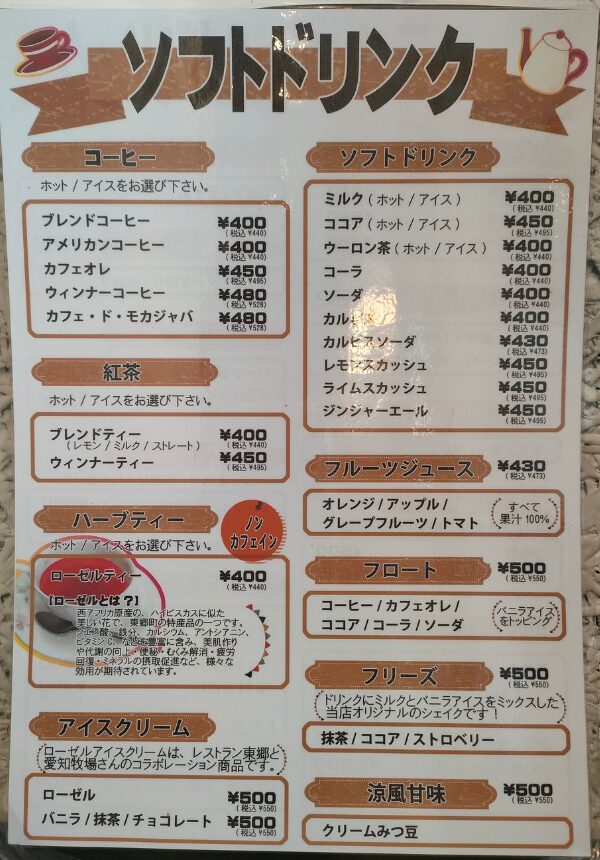 ソフトドリンク
コーヒー
ホット / アイスをお選び下さい。
ブレンドコーヒー ¥400
(税込 ¥440)
アメリカンコーヒー ¥400
(税込 ¥440)
カフェオレ ¥450
(税込 ¥495)
ウィンナーコーヒー ¥480
(税込 ¥528)
カフェ・ド・モカジャバ ¥480
(税込 ¥528)
紅茶
ホット / アイスをお選び下さい。
ブレンドティー ¥400
(レモン / ミルク / ストレート) (税込 ¥440)
ウィンナーティー ¥450
(税込 ¥495)
ハーブティー
ノン
カフェイン
ホット / アイスをお選び下さい。
ローゼルティー ¥400
(税込 ¥440)
【ローゼルとは?】
西アフリカ原産の、ハイビスカスに似た
美しい花で、東郷町の特産品の一つです。
クエン酸、鉄分、カルシウム、アントシアニン、
ビタミンC、などを豊富に含み、美肌作り
や代謝の向上・便秘・むくみ解消・疲労
回復・ミネラルの摂取促進など、様々な
効用が期待されています。
アイスクリーム
ローゼルアイスクリームは、レストラン東郷と
愛知牧場さんのコラボレーション商品です。
ローゼル ¥500
(税込 ¥550)
バニラ / 抹茶 / チョコレート ¥500
(税込 ¥550)
ソフトドリンク
ミルク ( ホット / アイス ) ¥400
(税込 ¥440)
ココア ( ホット / アイス ) ¥450
(税込 ¥495)
ウーロン茶 ( ホット / アイス ) ¥400
(税込 ¥440)
コーラ ¥400
(税込 ¥440)
ソーダ ¥400
(税込 ¥440)
カルピス ¥400
(税込 ¥440)
カルピスソーダ ¥430
(税込 ¥473)
レモンスカッシュ ¥450
(税込 ¥495)
ライムスカッシュ ¥450
(税込 ¥495)
ジンジャーエール ¥450
(税込 ¥495)
フルーツジュース ¥430
(税込 ¥473)
オレンジ / アップル /
グレープフルーツ / トマト
すべて
果汁 100%
フロート ¥500
(税込 ¥550)
コーヒー / カフェオレ /
ココア / コーラ / ソーダ
バニラアイス
をトッピング
フリーズ ¥500
(税込 ¥550)
ドリンクにミルクとバニラアイスをミックスした
当店オリジナルのシェイクです!
抹茶 / ココア / ストロベリー
涼風甘味 ¥500
(税込 ¥550)
クリームみつ豆